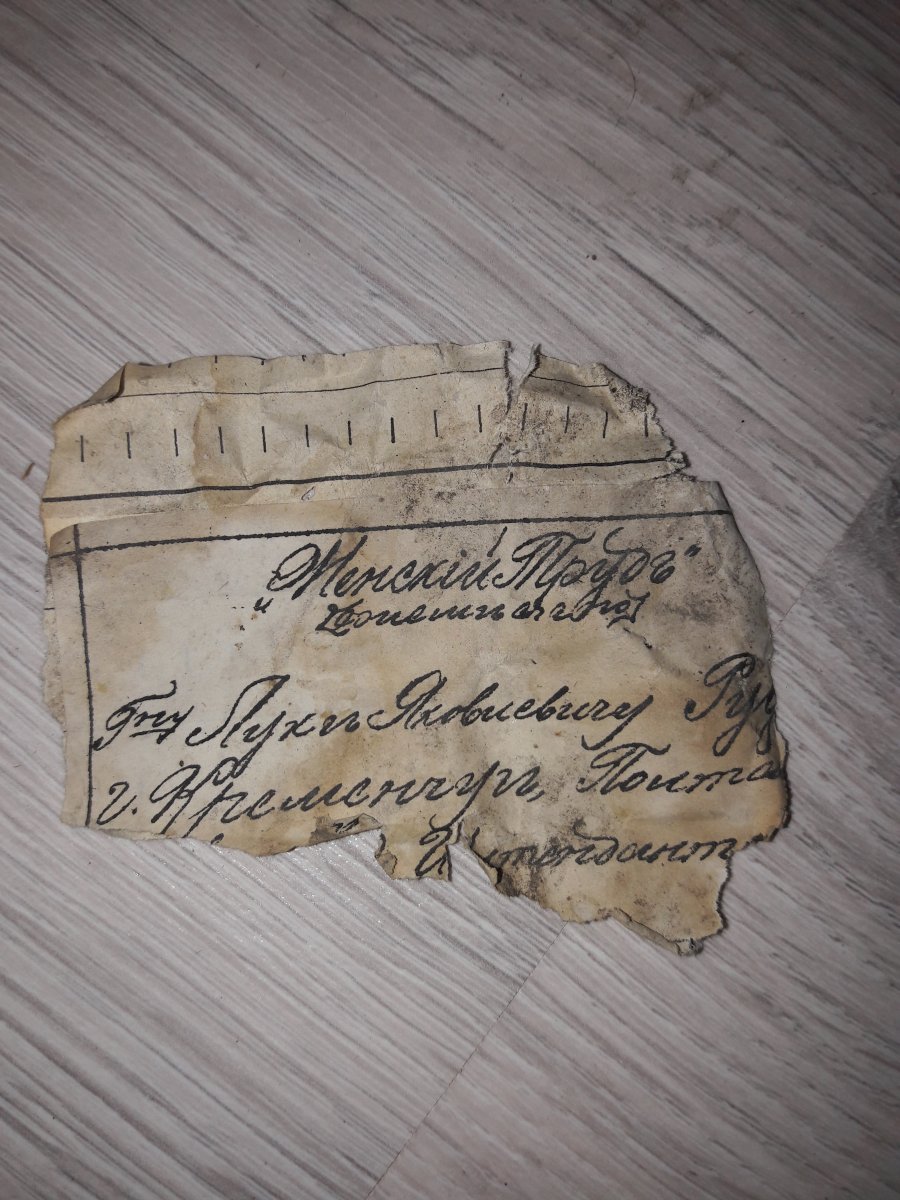 „Женскій Трудъ“
Гну Лукѣ Яковлевичу Ру
г. Кременчугъ, Полта
Интендант